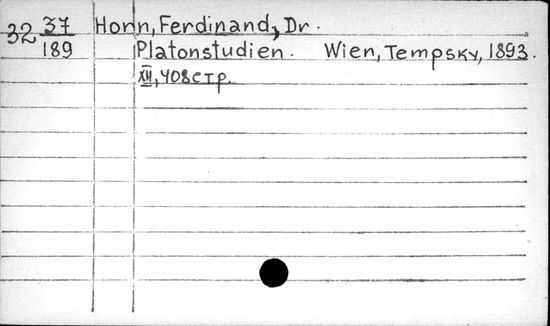 32 37/189 Horn, Ferdinand, Dr.
Platonstudien. Wien, Tempsky, 1893.
XII, 408 стр.